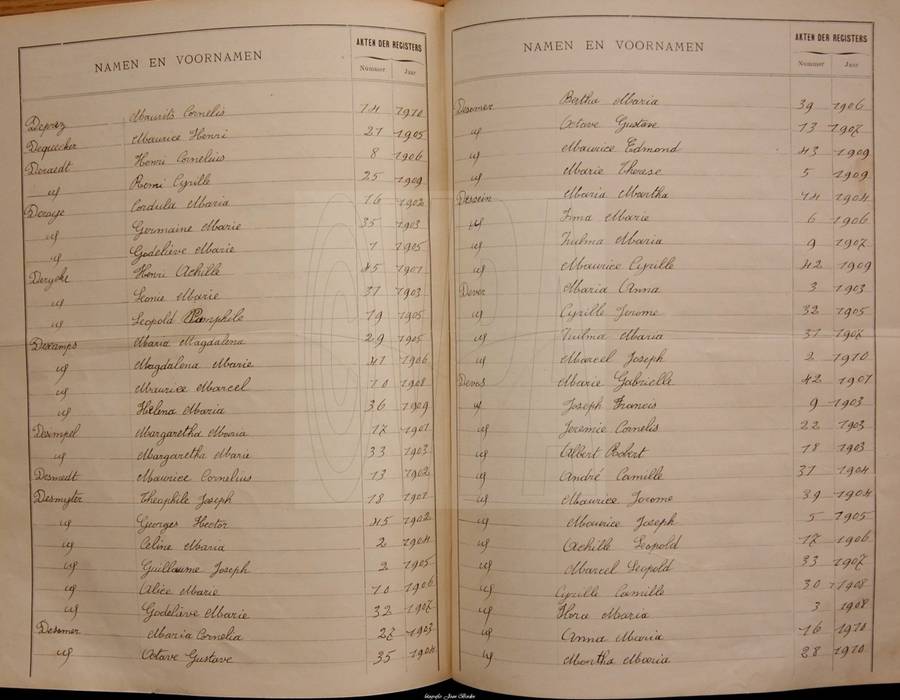 NAMEN EN VOORNAMEN AKTEN DER REGISTERS
Nummer Jaar
Deprez Maurits Cornelis 14 1910
Dequecker Maurice Henri 21 1905
Deraedt Henri Cornelius 8 1906
id Remi Cyrille 25 1909
Deraeje Cordula Maria 16 1902
id Germaine Marie 35 1903
id Godelieve Marie 1 1905
Derycke Henri Achille 45 1901
id Leonie Marie 31 1903
id Leopold Pamphile 19 1905
Descamps Maria Magdalena 29 1905
id Magdalena Marie 41 1906
id Maurice Marcel 10 1908
id Helena Maria 36 1909
Desimpel Margaretha Maria 17 1901
id Margaretha Marie 33 1903
Desmedt Maurice Cornelius 13 1902
Desmyter Theophile Joseph 18 1901
id Georges Hector 45 1902
id Celine Maria 2 1904
id Guillaume Joseph 2 1905
id Alice Marie 10 1906
id Godelieve Marie 32 1907
Desomer Maria Cornelia 27 1903
id Octave Gustave 35 1904
NAMEN EN VOORNAMEN AKTEN DER REGISTERS
Nummer Jaar
Desomer Bertha Maria 39 1906
id Octave Gustave 13 1907
id Maurice Edmond 43 1909
id Marie Therese 5 1909
Dessein Maria Martha 14 1904
id Irma Marie 6 1906
id Zulma Maria 9 1907
id Maurice Cyrille 42 1909
Dever Maria Anna 3 1903
id Cyrille Jerome 32 1905
id Zulma Maria 31 1907
id Marcel Joseph 2 1910
Devos Marie Gabrielle 42 1901
id Joseph Francis 9 1903
id Jeremie Cornelis 22 1903
id Albert Robert 18 1903
id André Camille 31 1904
id Maurice Jerome 39 1904
id Maurice Joseph 5 1905
id Achille Leopold 17 1906
id Marcel Leopold 33 1907
id Cyrille Camille 30 1908
id Flora Maria 3 1908
id Anna Maria 16 1910
id Martha Maria 28 1910